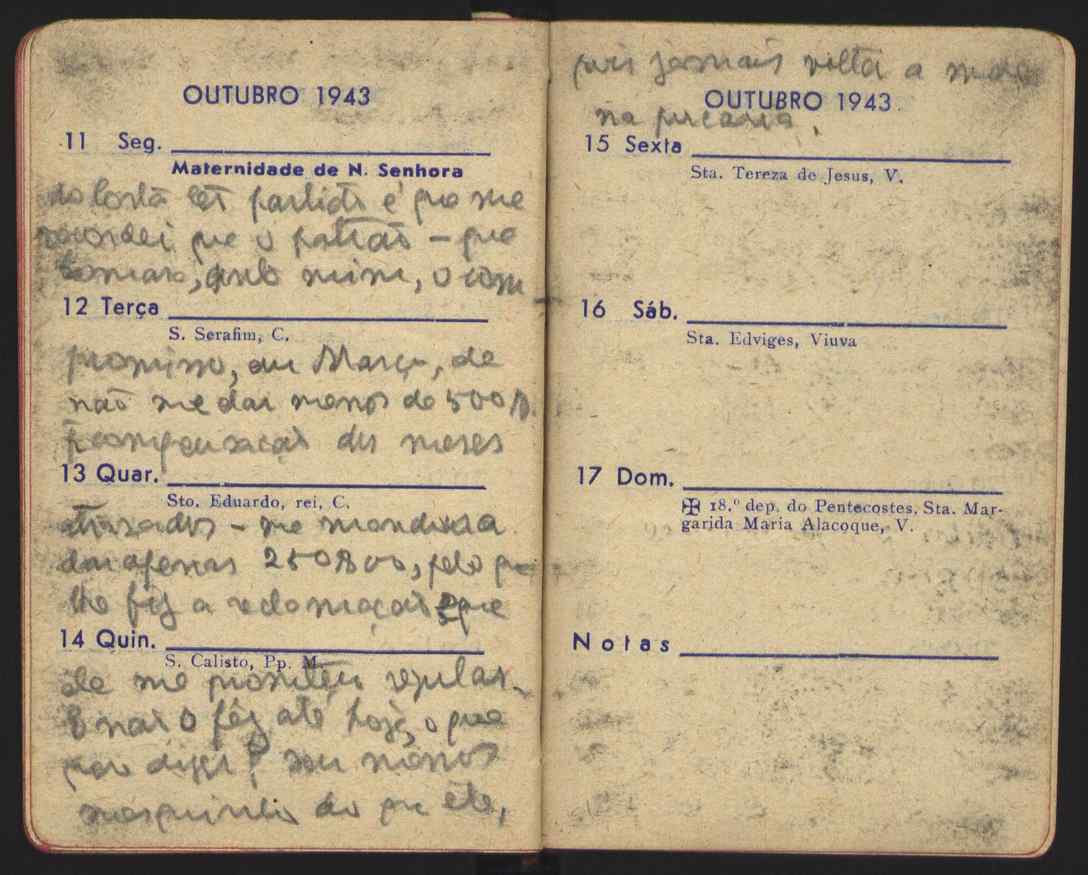 OUTUBRO 1943
11 Seg.
Maternidade de N. Senhora
do Costa ter partido é que me
recordei que o patrão – que
tomara, para mim, o com-
12 Terça
S. Serafim, C.
promisso, em Março, de
não me dar menos de 500$
compensação dos meses
13 Quar.
Sto. Eduardo, rei, C.
atrazados – me mandara
dar apenas 250$00, pelo que
lhe fiz a reclamação que
14 Quin.
S. Calisto, Pp. M.
ele me prometeu regular.
E não o fêz até hoje, o que
quer dizer? Sou menos
mesquinho do que êle,
pois jamais voltei a
OUTUBRO 1943
na
15 Sexta
Sta. Tereza de Jesus, V.
16 Sáb.
Sta. Edviges, Viuva
17 Dom.
✠ 18.º dep. do Pentecostes, Sta. Mar-
garida Maria Alacoque, V.
Notas